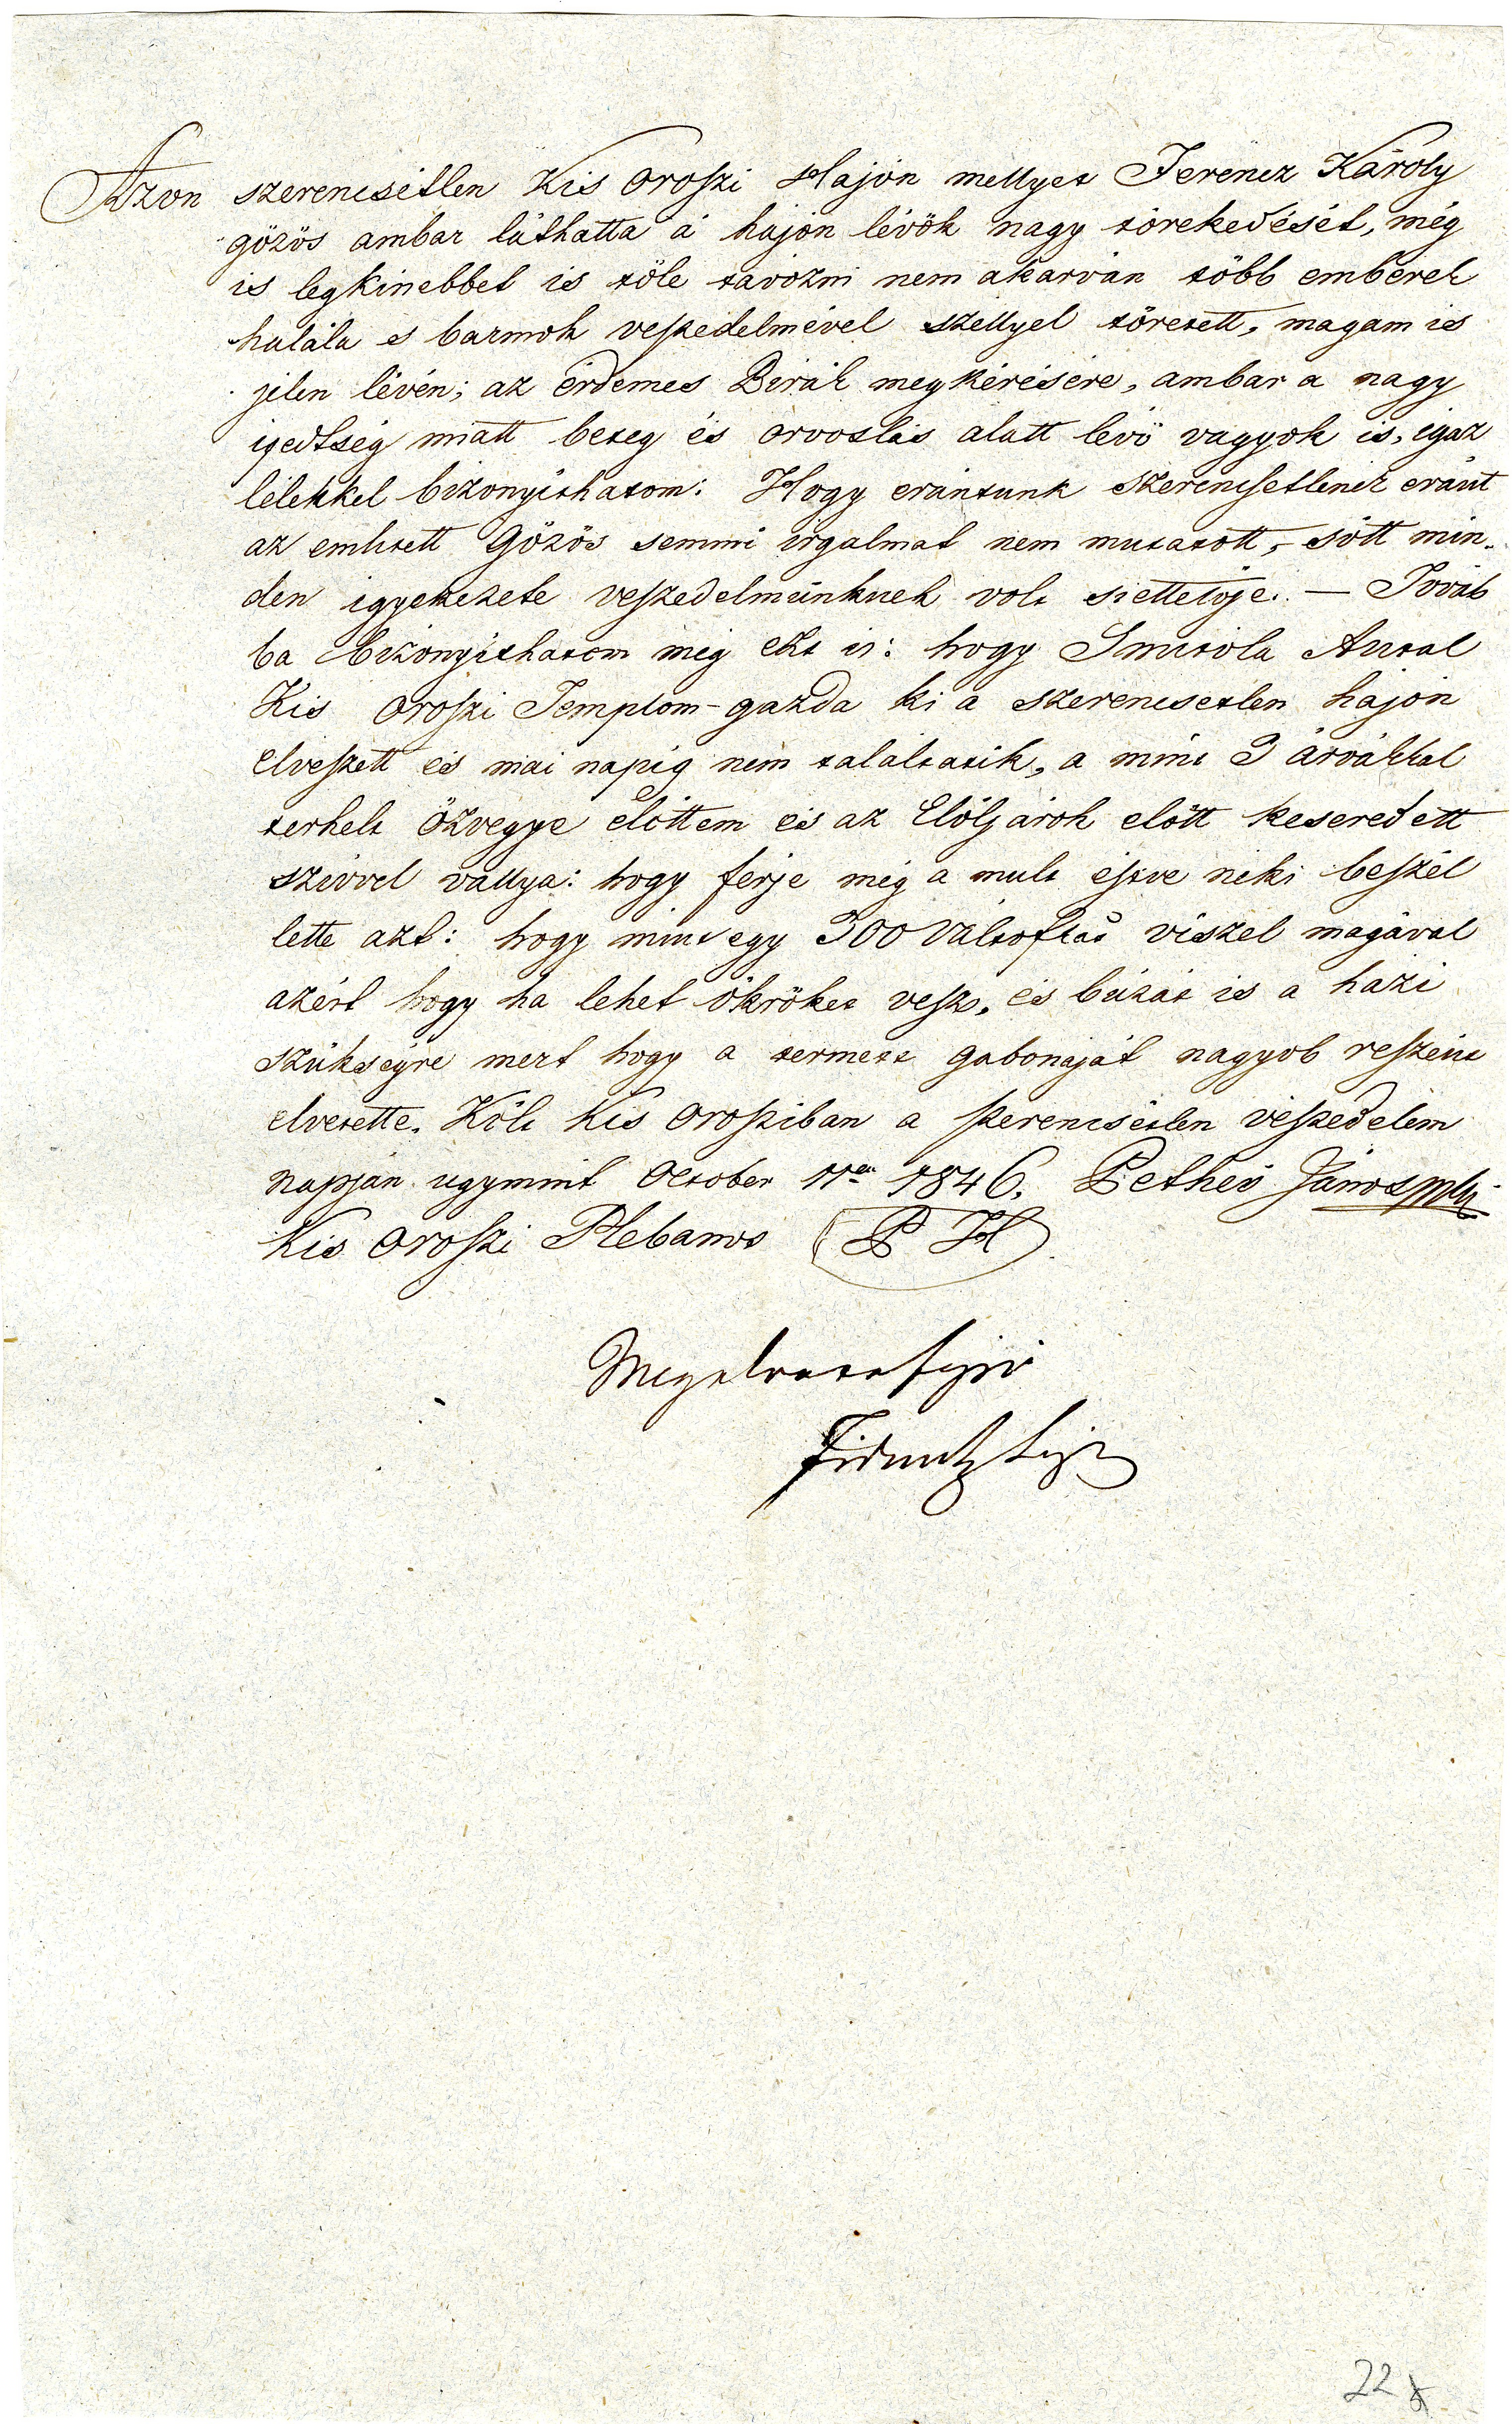 Azon szerencsétlen Kis Oroszi Hajón mellyet Ferencz Károly
gözös ambar láthatta á hajón lévök nagy törekedését, még
is legkissebbet is töle távozni nem akarván több emberek
halála s barmok veszedelmével szellyel töretett, magam is
jelen lévén; az érdemes Birák megkérésére, ambar a nagy
ijedtség miatt beteg és orvoslás alatt levö vagyok is, igaz
lélekkel bizonyithatom: Hogy erántunk szerencsetlenek eránt
az emlitett Gözös semmi irgalmat nem mutatott, sött min-
den igyekezete veszedelmünknek volt siettetöje. — Továb
ba bizonyithatom még ezt is: hogy Smitola Antal
Kis Oroszi Templom-gazda ki a szerencsetlen hajón
elveszett és mai napig nem találtatik, a mint 3 árvákkal
terhelt özvegye elöttem és az Elöljárok elött keseredett
szivvel vallya: hogy férje még a mult éjtve neki beszél
lette azt: hogy mint egy 300 váltoftat viszel magával
azért hogy ha lehet ökröket vesz, és búzát is a házi
szükségre mert hogy a termett gabonáját nagyob reszint
elvetette. Költ Kis Orosziban a szerencsétlen veszedelem
napján ugymint October 11én 1846. Bethes János mk
Kis Oroszi Plebanos (P H)
22